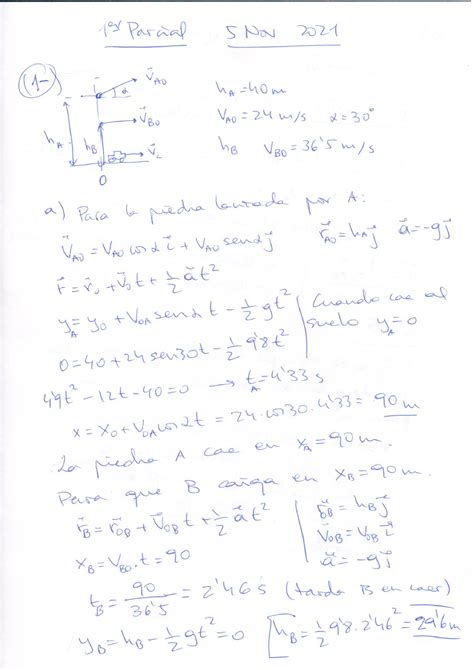 1er Parcial 5 Nov 2021
(1-)
V⃗A0
α
hA = 40 m
V⃗B0
VA0 = 24 m/s α = 30°
hA
hB
V⃗L
hB VB0 = 36'5 m/s
O
a) Para la piedra lanzada por A:
V⃗A0 = VA0 cos α i⃗ + VA0 sen α j⃗ r⃗A0 = hA j⃗ a⃗ = -g j⃗
r⃗ = r⃗0 + V⃗0 t + 1/2 a⃗ t²
yA = y0 + V0A sen α t - 1/2 g t² Cuando cae al
suelo yA = 0
0 = 40 + 24 sen 30 t - 1/2 9'8 t²
4'9 t² - 12 t - 40 = 0 → tA = 4'33 s
x = x0 + V0A cos α t = 24 · cos 30 · 4'33 = 90 m
La piedra A cae en xA = 90 m.
Para que B caiga en xB = 90 m.
r⃗B = r⃗0B + V⃗0B t + 1/2 a⃗ t² r⃗0B = hB j⃗
V⃗0B = V0B i⃗
xB = VB0 · t = 90 a⃗ = -g j⃗
tB = 90/36'5 = 2'46 s (tarda B en caer)
yB = hB - 1/2 g t² = 0 hB = 1/2 9'8 · 2'46² = 29'6 m